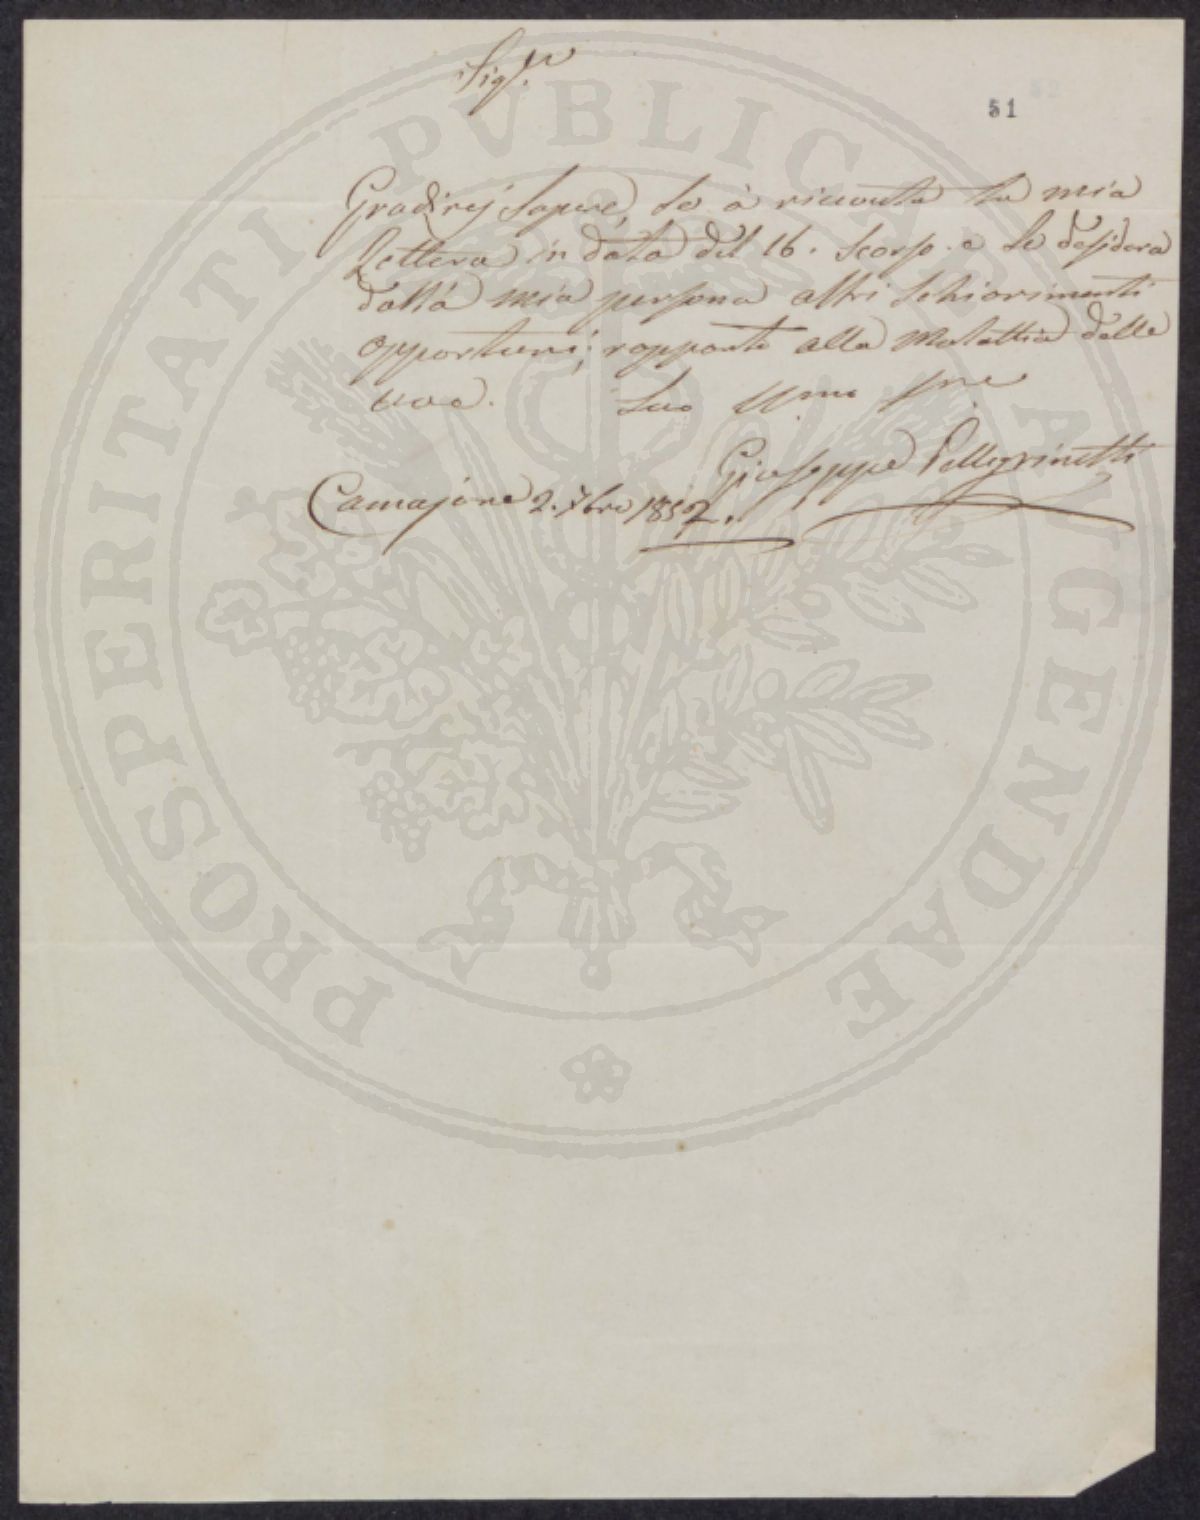 Sig.re
51
Gradirej sapere, se à ricevuta la mia
Lettera in data del 16. scorso. e se desidera
dalla mia persona altri schiarimenti
opportuni; rapporto alla malattia delle
uve. Suo U.mo
Giuseppe Pellegrinetti
Camajore 2. 7bre 1852.
PROSPERITATI PVBLICAE AVGENDAE